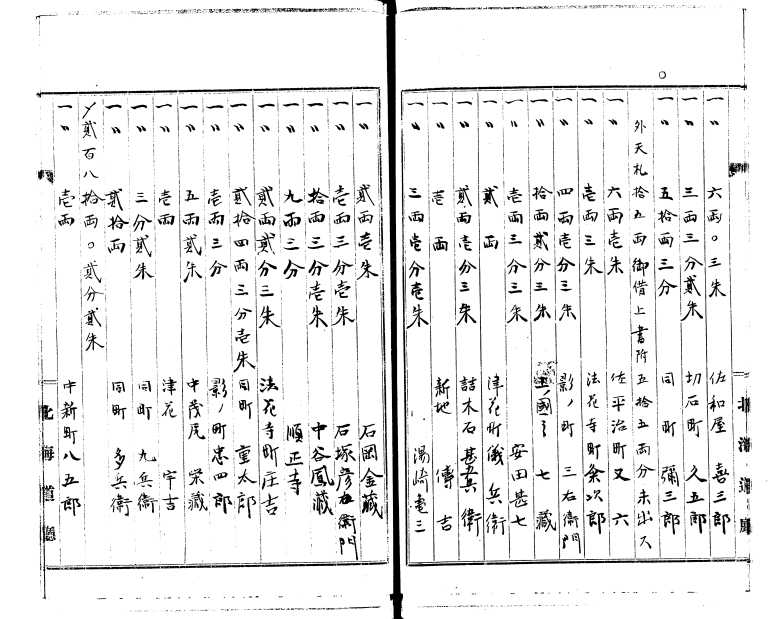 一〃 六両〇三朱 佐和屋 喜三郎
一〃 三両三分貳朱 切石町 久五郎
一〃 五拾両三分 同町 彌三郎
外天札拾五両御借上書附五拾五両分未出ス
一〃 六両壱朱 佐平治町 又六
一〃 壱両三朱 法花寺町 粂次郎
一〃 四両壱分三朱 影ノ町 三右衛門
一〃 拾両貳分三朱 上ノ國 七藏
一〃 壱両三分三朱 安田甚七
一〃 貳両 津花町 儀兵衛
一〃 貳両壱分三朱 詰木石 甚兵衛
一〃 壱両 新地 傳吉
一〃 三両壱分壱朱 湯崎 三
北海道廳
一〃 貳両壱朱 石岡金藏
一〃 壱両三分壱朱 石塚彦右衛門
一〃 拾両三分壱朱 中谷鳳藏
一〃 九両三分 順正寺
一〃 貳両貳分三朱 法花寺町 庄吉
一〃 貳拾四両三分壱朱 同町 重太郎
一〃 壱両三分 影ノ町 忠四郎
一〃 五両貳朱 中茂尻 栄藏
一〃 壱両 津花 宇吉
一〃 三分貳朱 同町 九兵衛
一〃 貳拾両 同町 多兵衛
〆貳百八拾両〇貳分貳朱
一〃 壱両 中新町 八五郎
北海道廳